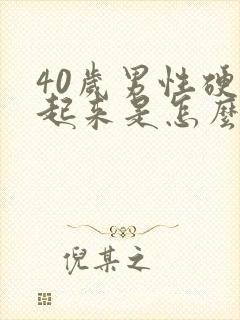 40歲男性硬
起来是怎麼
倪某之